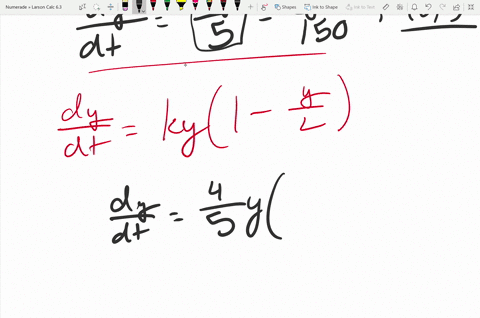 Numerade » Larson Calc 6.3
Ink to Shape
Ink to Text
dy/dt = 5 = 150 ,
dy/dt = ky(1 - y/L)
dy/dt = 4/5 y(